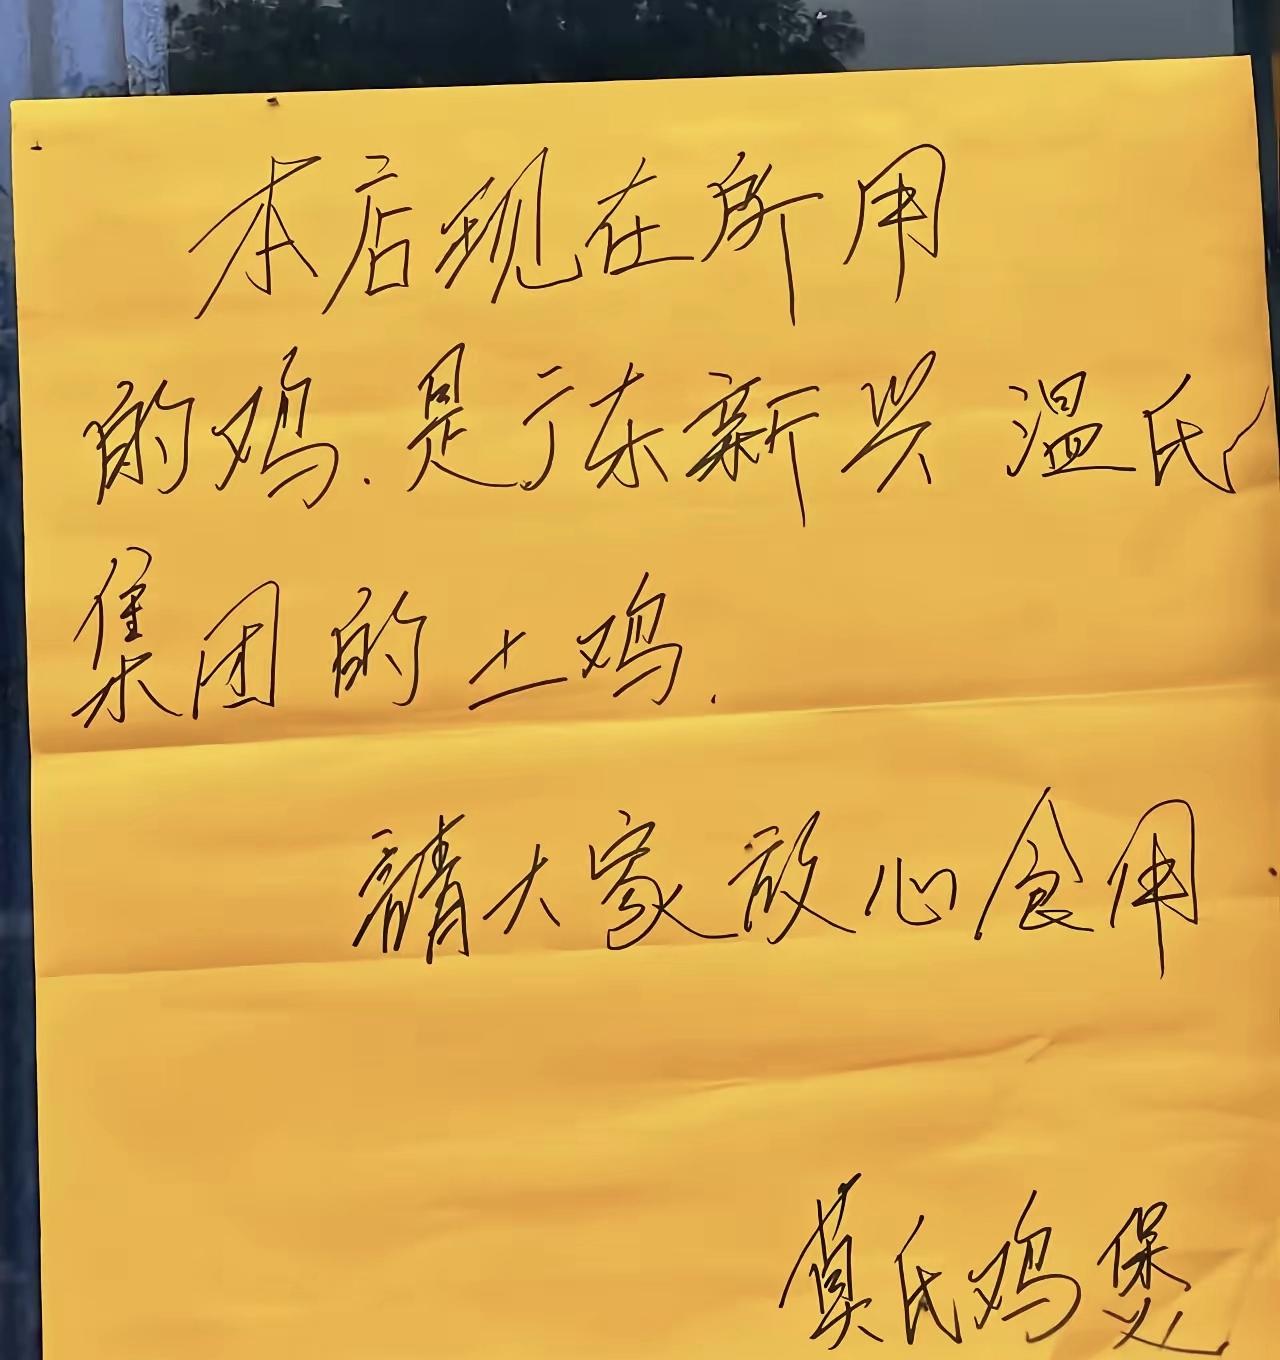 本店现在所用
的鸡.是广东新兴温氏
集团的土鸡.
請大家放心食用
莫氏鸡煲